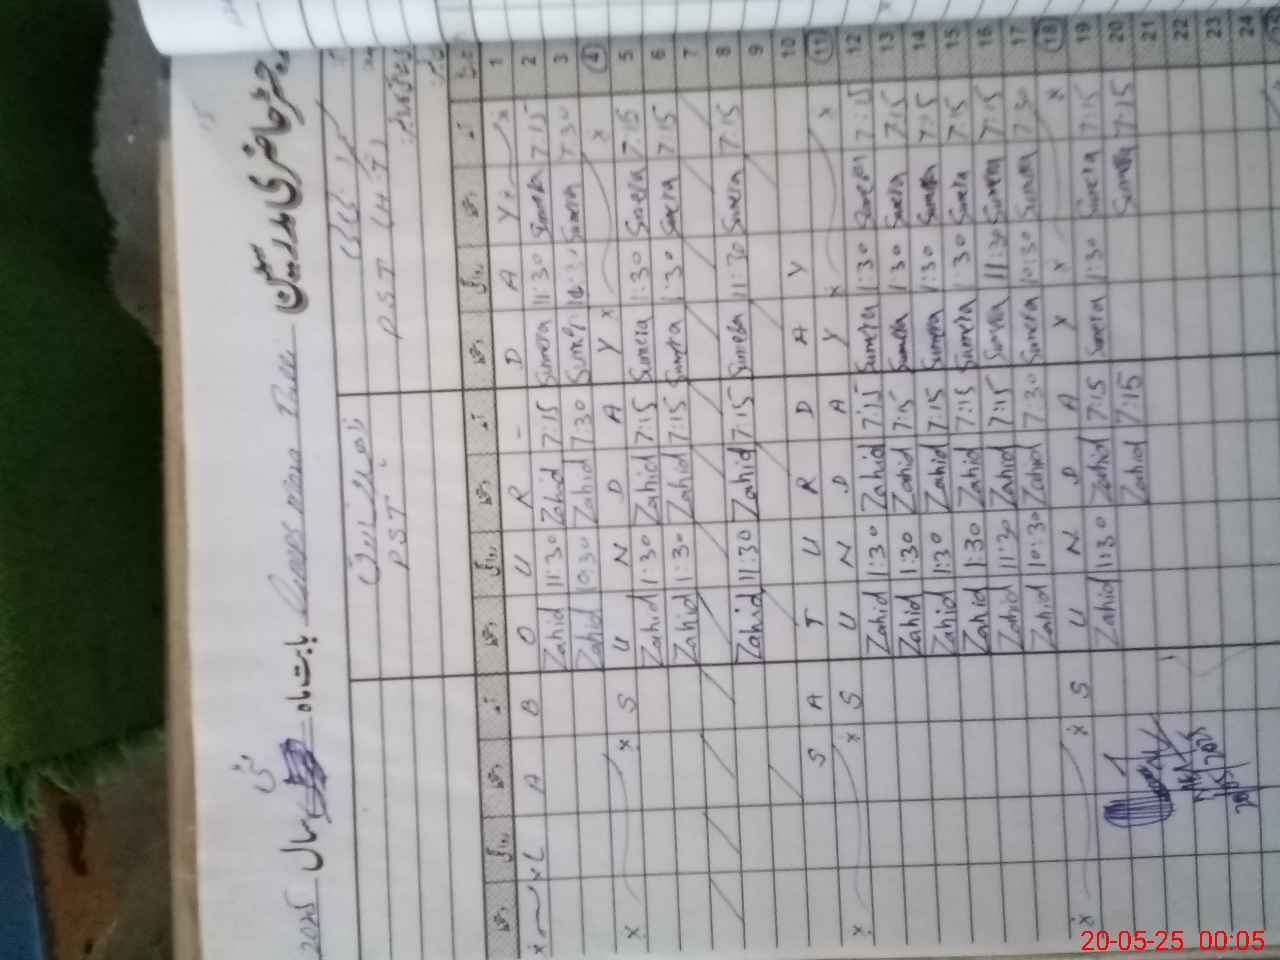 رجسٹر حاضری مدرسین بابت ماہ مئی سال 2025
PST
PST
تاریخ آمد دستخط روانگی دستخط آمد دستخط روانگی دستخط آمد دستخط روانگی دستخط
x L A B O U R - D A Y x 1
Zahid 11:30 Zahid 7:15 Sumera 11:30 Sumera 7:15 2
Zahid 10:30 Zahid 7:30 Sumera 10:30 Sumera 7:30 3
x x S U N D A Y x x 4
Zahid 1:30 Zahid 7:15 Sumera 1:30 Sumera 7:15 5
Zahid 1:30 Zahid 7:15 Sumera 1:30 Sumera 7:15 6
7
Zahid 11:30 Zahid 7:15 Sumera 11:30 Sumera 7:15 8
9
S A T U R D A Y 10
x x S U N D A Y x x 11
Zahid 1:30 Zahid 7:15 Sumera 1:30 Sumera 7:15 12
Zahid 1:30 Zahid 7:15 Sumera 1:30 Sumera 7:15 13
Zahid 1:30 Zahid 7:15 Sumera 1:30 Sumera 7:15 14
Zahid 1:30 Zahid 7:15 Sumera 1:30 Sumera 7:15 15
Zahid 11:30 Zahid 7:15 Sumera 11:30 Sumera 7:15 16
Zahid 10:30 Zahid 7:30 Sumera 10:30 Sumera 7:30 17
x x S U N D A Y x x 18
Zahid 1:30 Zahid 7:15 Sumera 1:30 Sumera 7:15 19
Zahid 7:15 Sumera 7:15 20
21
22
23
24
20-05-25 00:05